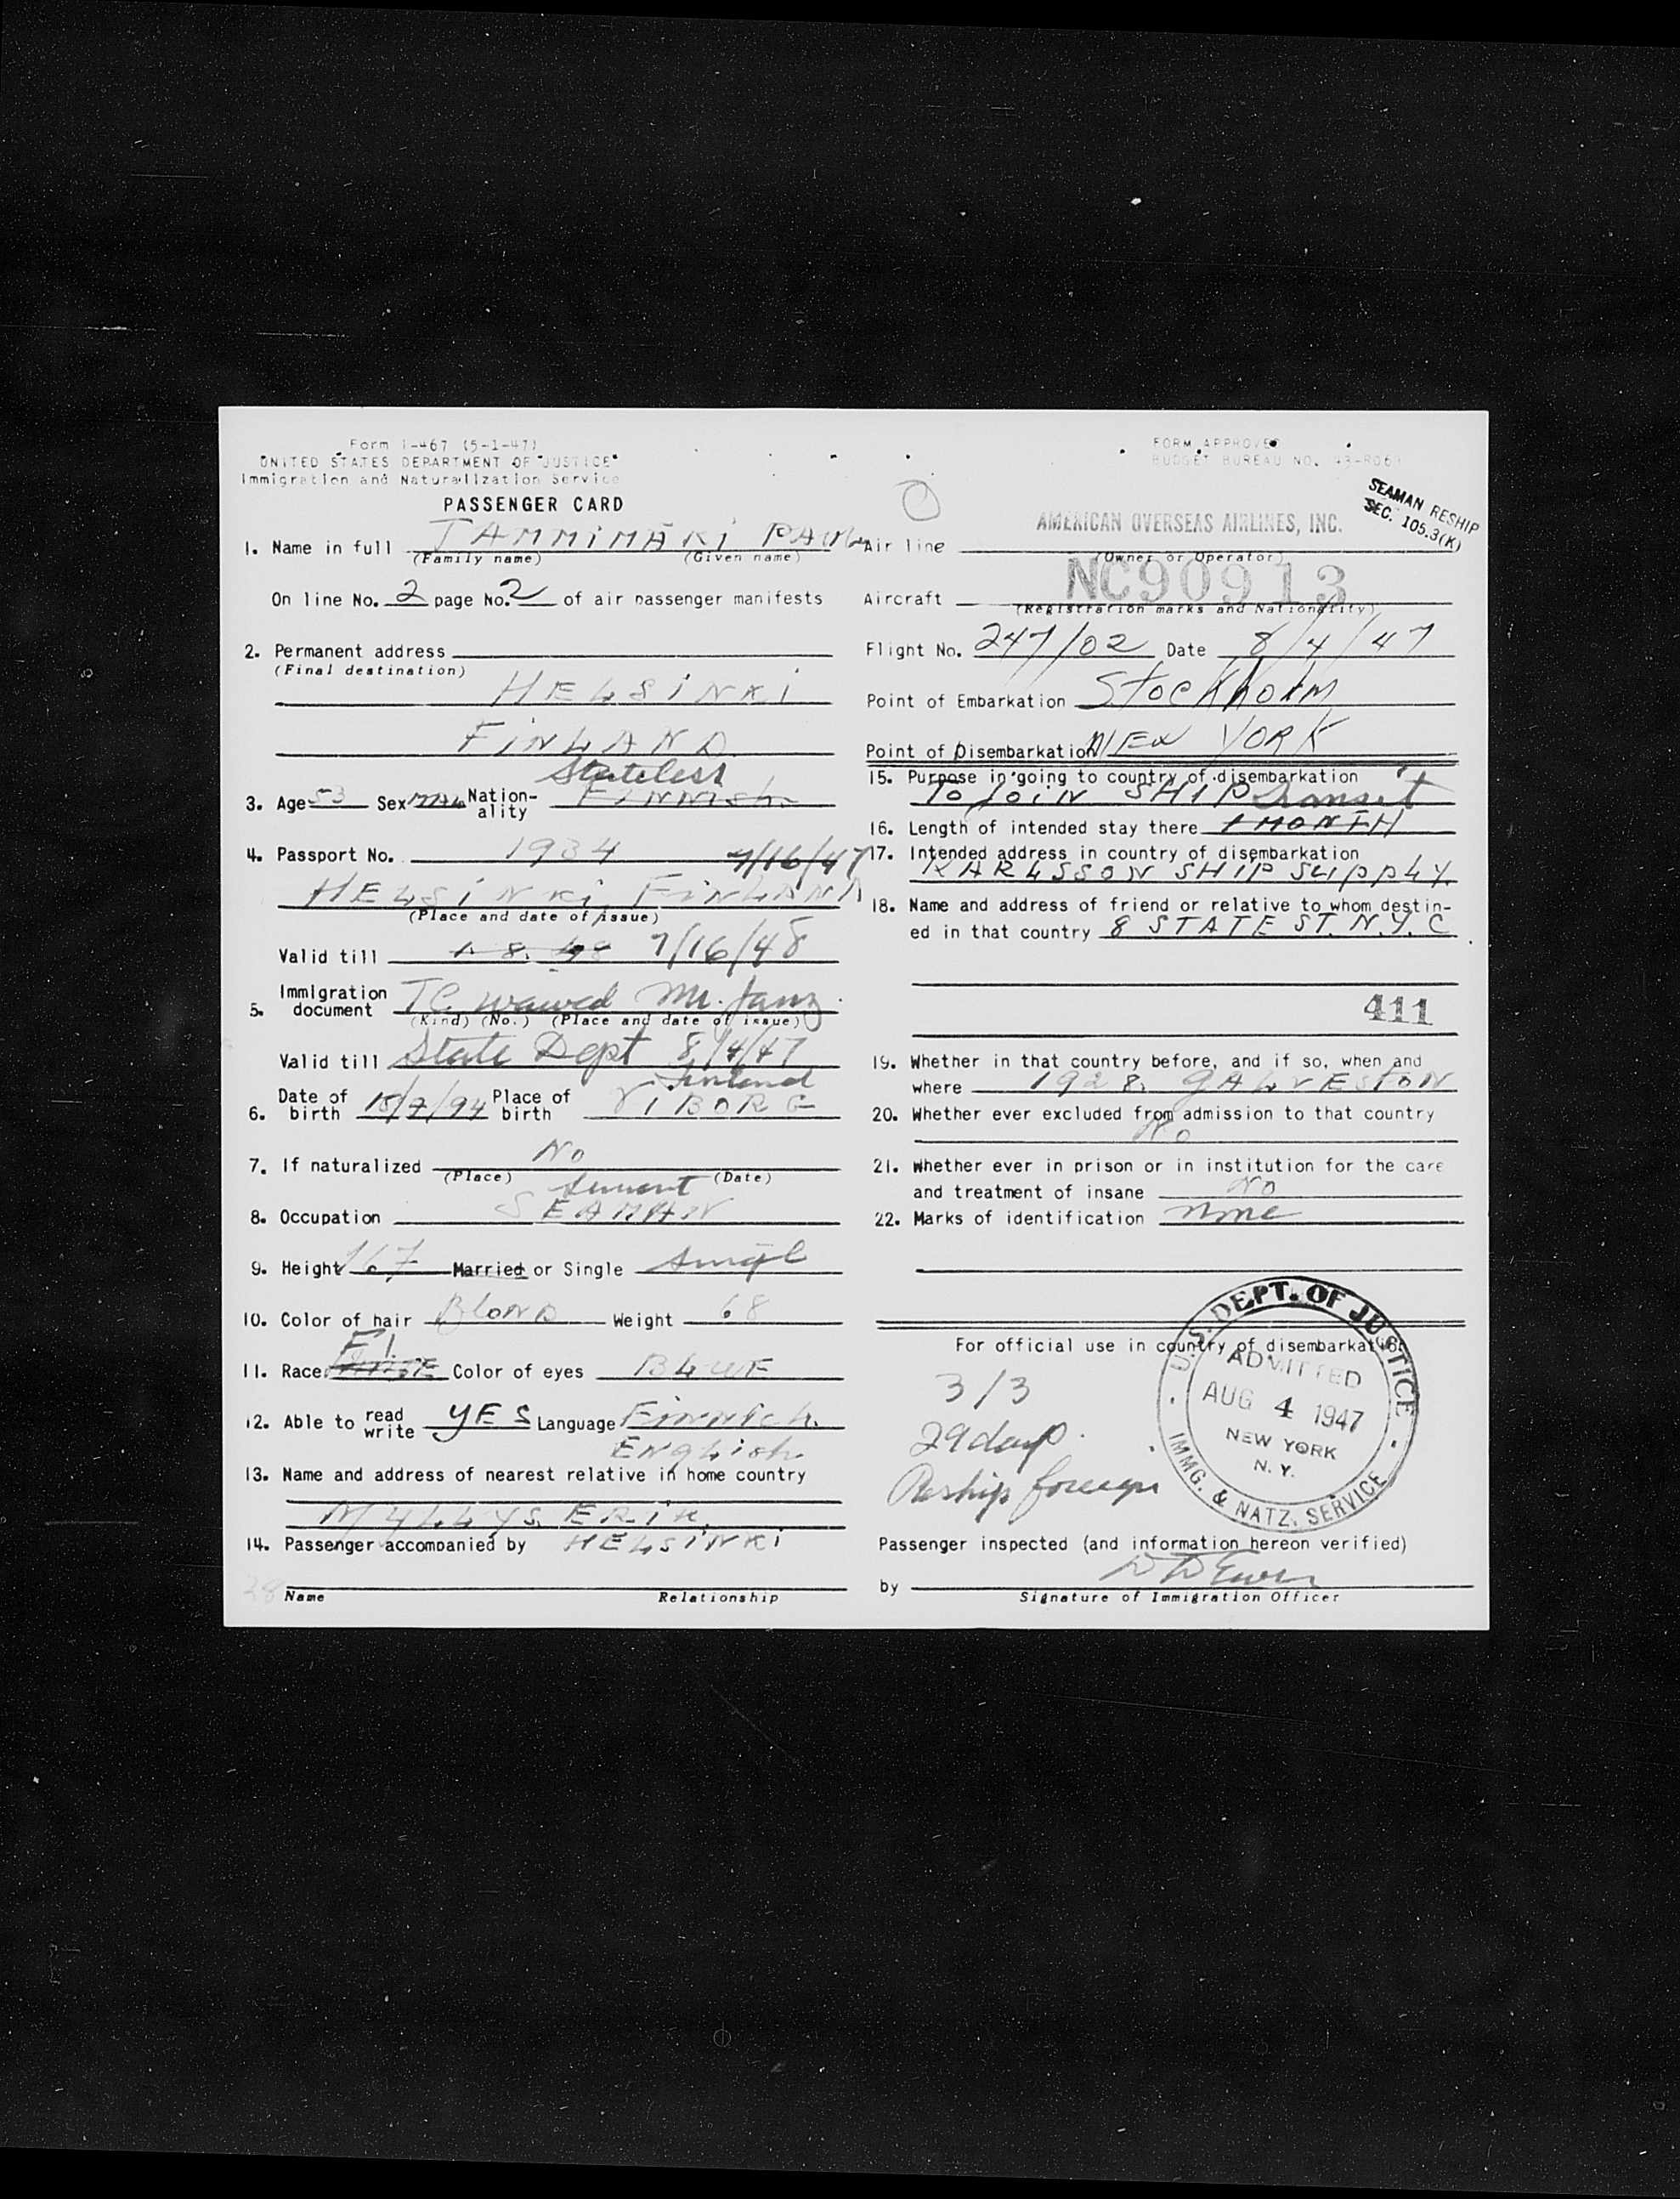 Form I-467 (5-1-47)
UNITED STATES DEPARTMENT OF JUSTICE
Immigration and Naturalization Service
PASSENGER CARD
1. Name in full TAMMIMÄKI
(Family name) (Given name)
On line No. 2 page No. 2 of air passenger manifests
2. Permanent address
(Final destination)
HELSINKI
FINLAND
Stateless
3. Age 53 Sex MAL Nation-ality Finnish
4. Passport No. 1934 7/16/47
HELSINKI, FINLAND
(Place and date of issue)
Valid till 1. 8. 48 7/16/48
5. Immigration document TC waived Mr.
(Kind) (No.) (Place and date of issue)
Valid till State Dept 8/4/47
Finland
6. Date of birth 18/7/94 Place of birth VIBORG
7. If naturalized No
(Place) (Date)
8. Occupation SEAMAN
9. Height 167 Married or Single Single
10. Color of hair Blond Weight 68
FI
11. Race Color of eyes BLUE
12. Able to read write YES Language Finnich.
English
13. Name and address of nearest relative in home country
MYLLYS ERIK.
14. Passenger accompanied by HELSINKI
Name Relationship
FORM APPROVED
BUDGET BUREAU NO. 43-R061
SEAMAN RESHIP
SEC. 105.3(K)
AMERICAN OVERSEAS AIRLINES, INC.
Air line
(Owner or Operator)
NC90913
Aircraft
(Registration marks and Nationality)
Flight No. 247/02 Date 8/4/47
Point of Embarkation Stockholm
Point of Disembarkation NEW YORK
15. Purpose in going to country of disembarkation
TO JOIN SHIP transit
16. Length of intended stay there 1 MONTH
17. Intended address in country of disembarkation
KARLSSON SHIP SUPPLY.
18. Name and address of friend or relative to whom destin-
ed in that country 8 STATE ST. N.Y.C
411
19. Whether in that country before, and if so, when and
where 1928. GALVESTON
20. Whether ever excluded from admission to that country
No
21. Whether ever in prison or in institution for the care
and treatment of insane No
22. Marks of identification none
For official use in country of disembarkation
3/3
29 days.
Reship foreign
U.S. DEPT. OF JUSTICE
ADMITTED
AUG 4 1947
NEW YORK
N. Y.
IMMG. & NATZ. SERVICE
Passenger inspected (and information hereon verified)
by
Signature of Immigration Officer